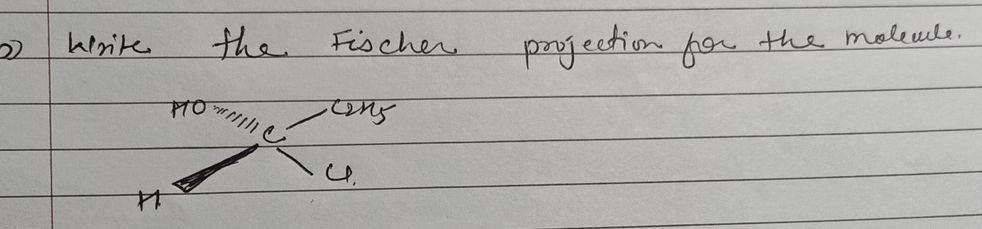 2) Write the Fischer projection for the molecule.
HO C C2H5
H Cl